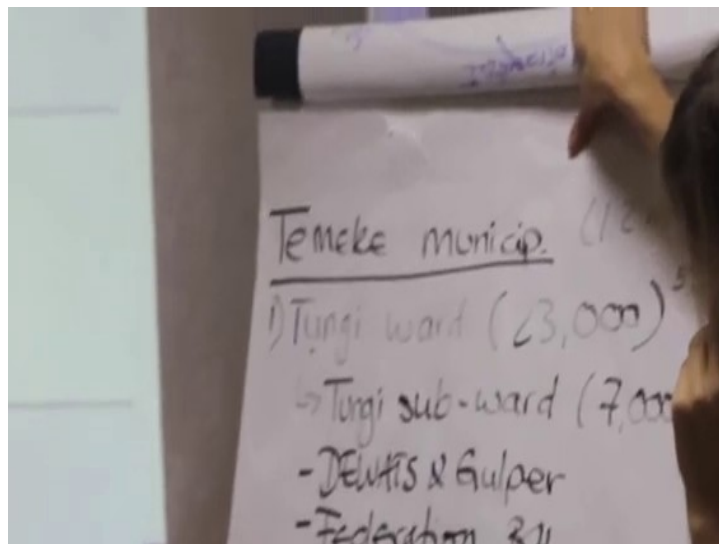 Temeke municip.
1) Tungi ward (23,000)
↳ Tungi sub-ward (7,000
- DEWATS & Gulper
- Federation